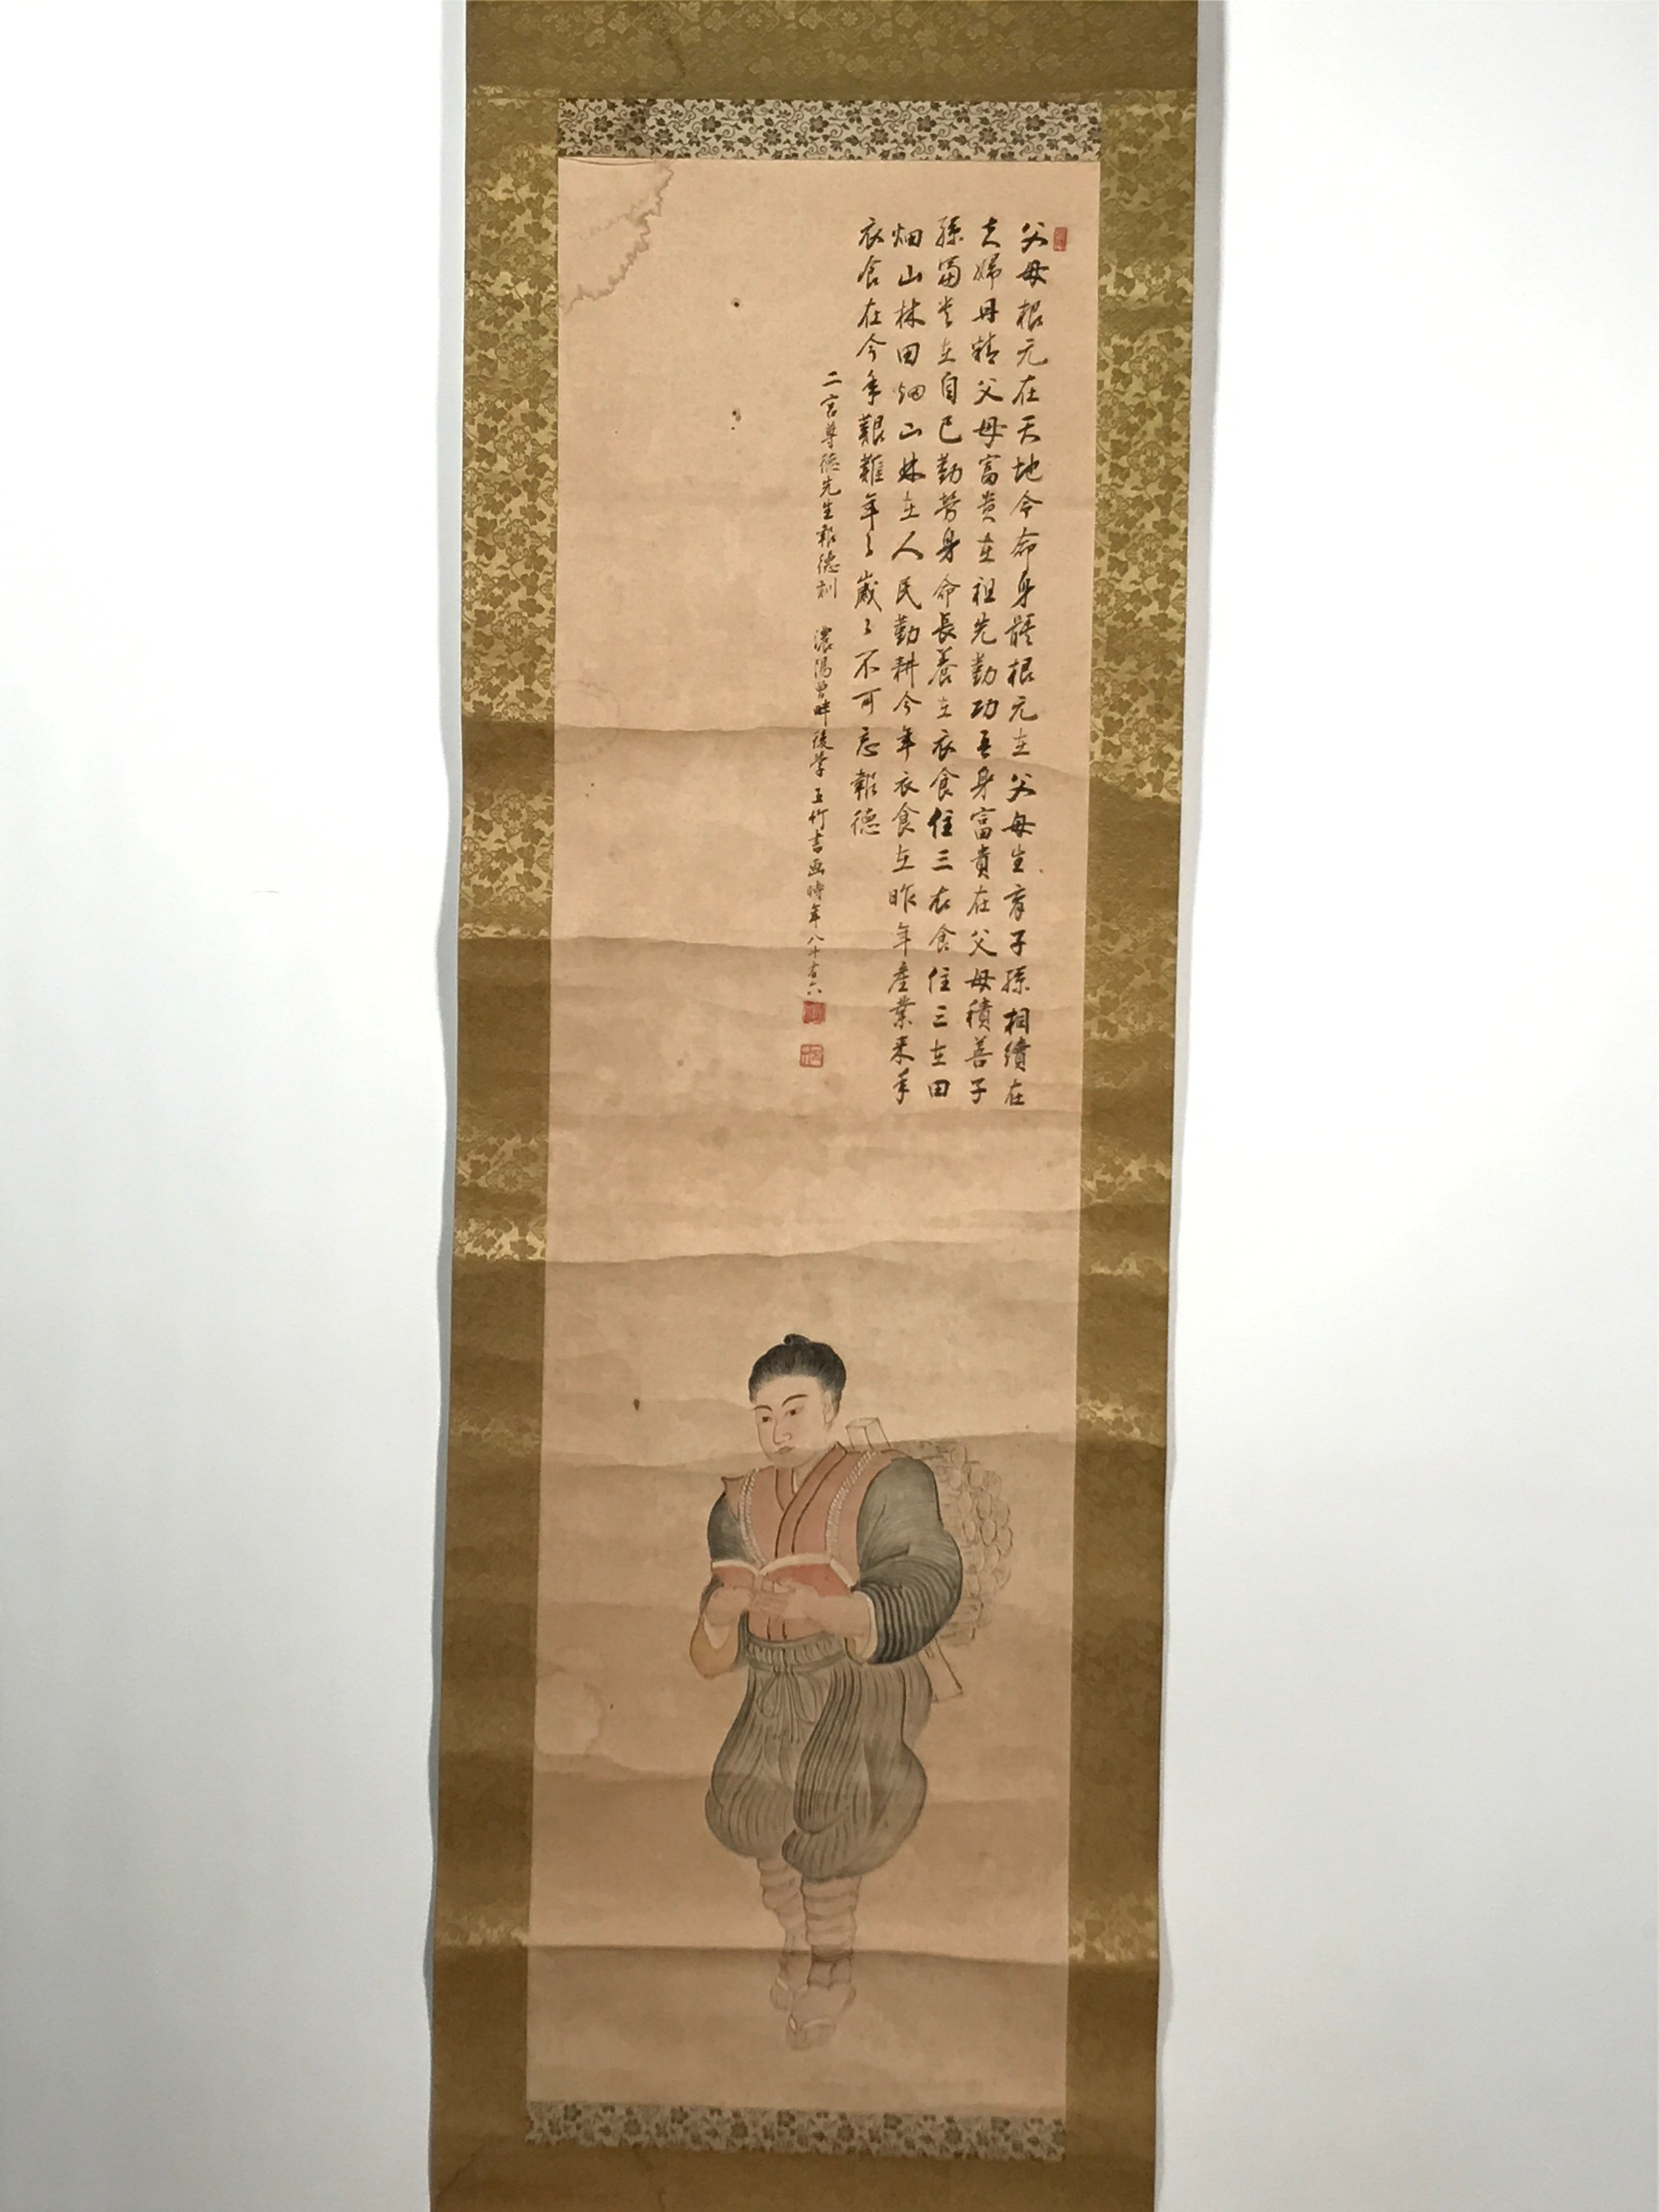 父母根元在天地令命身体根元在父母生育子孫相續在
夫婦丹精父母富貴在祖先勤功吾身富貴在父母積善子
孫富貴在自己勤労身命長養在衣食住三衣食住三在田
畑山林田畑山林在人民勤耕今年衣食在昨年産業来年
衣食在今年艱難年々歳々不可忘報徳
二宮尊徳先生報徳訓 濃陽曽畔後学 玉竹書画時年八十有六